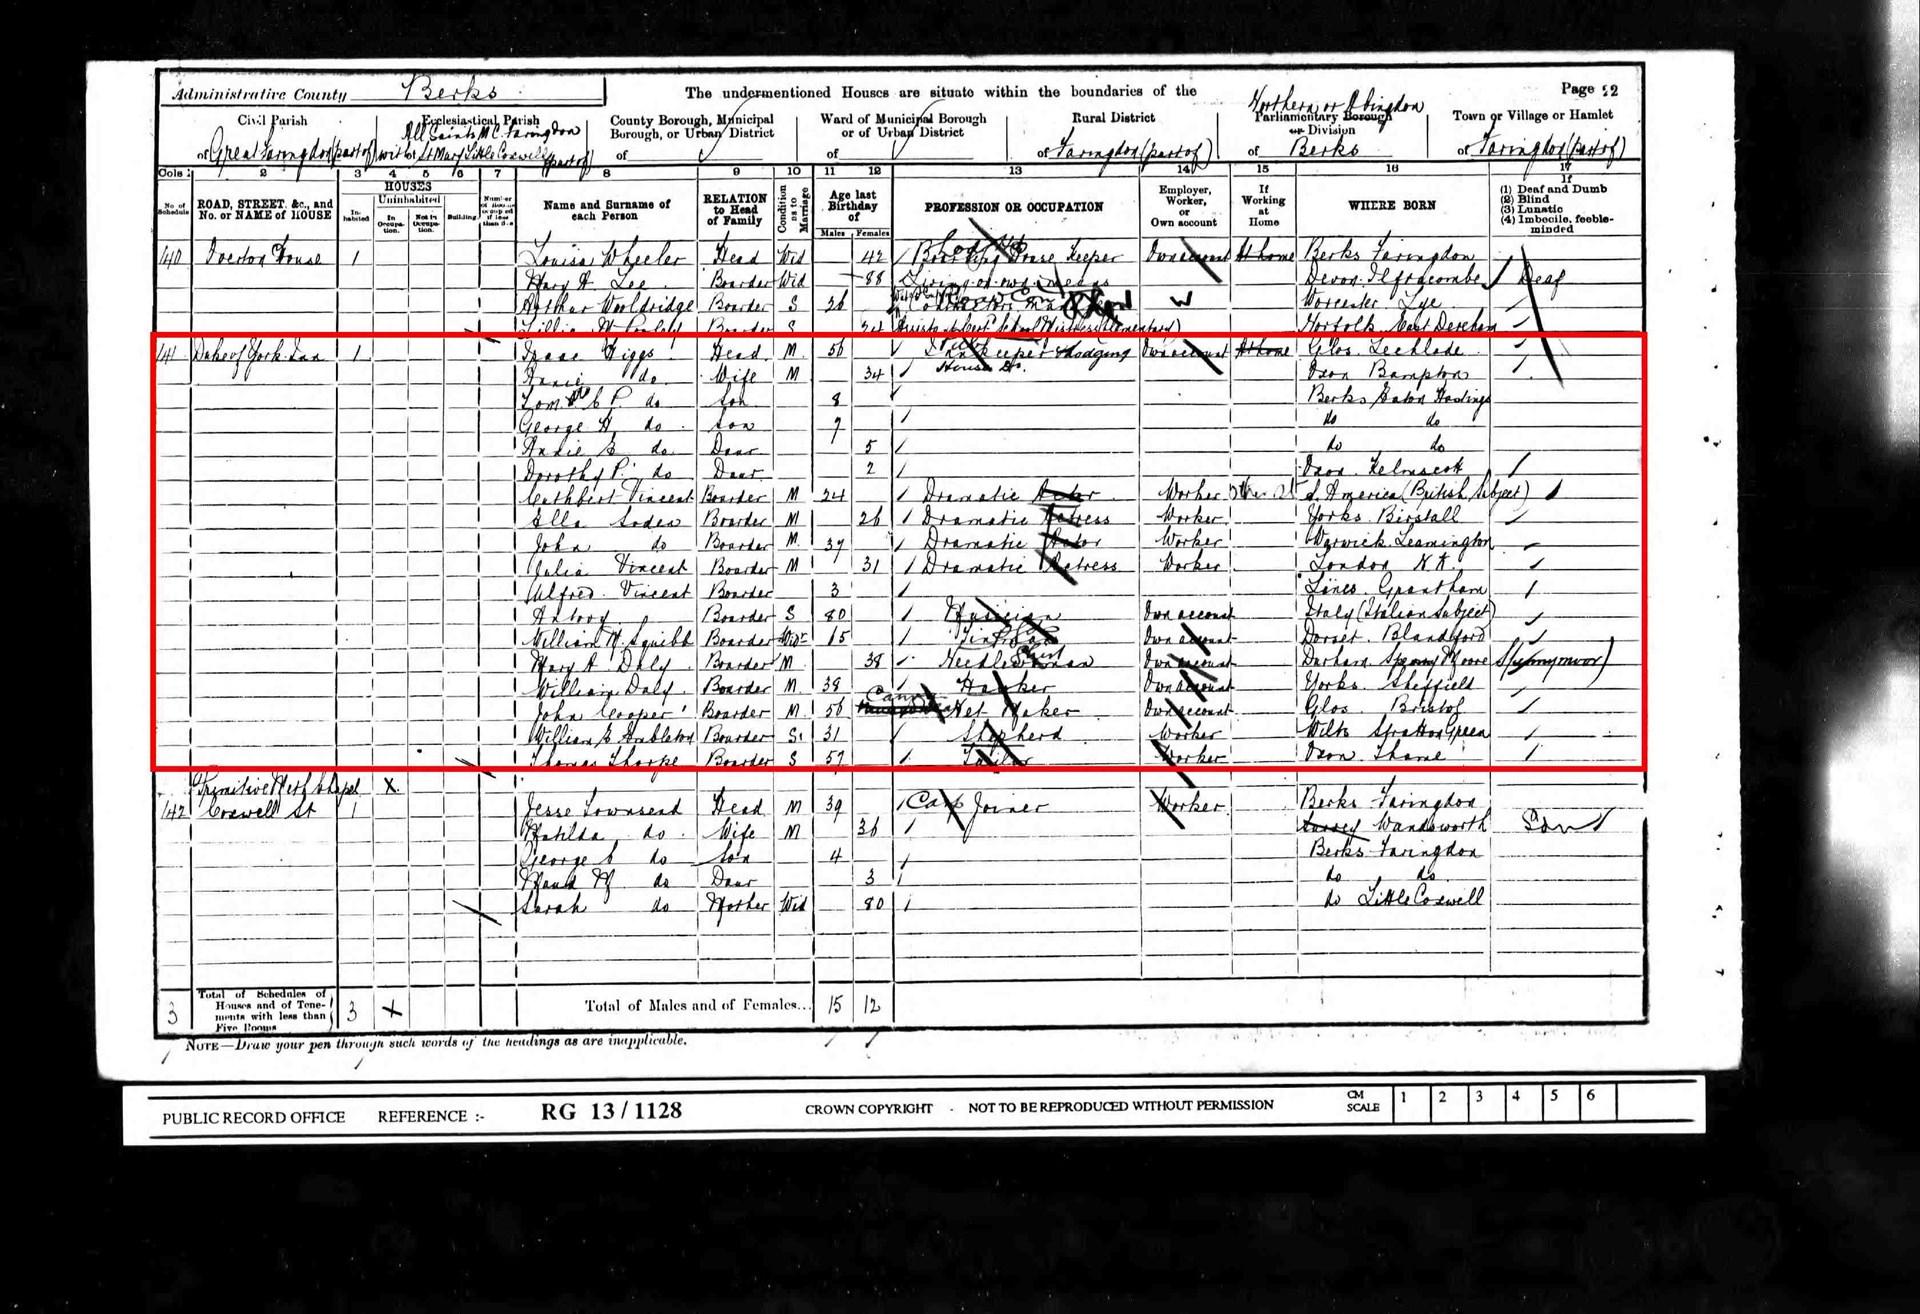 Administrative County Berks
The undermentioned Houses are situate within the boundaries of the
Page 22
Civil Parish
of Great Faringdon (part of)
Ecclesiastical Parish
All Saints M.C. Faringdon
with St Mary Little Coxwell (part of)
County Borough, Municipal
Borough, or Urban District
of
Ward of Municipal Borough
or of Urban District
of
Rural District
of Faringdon (part of)
Northern or Abingdon
Parliamentary Borough
or Division
of Berks
Town or Village or Hamlet
of Faringdon (part of)
Cols 1 2 3 4 5 6 7 8 9 10 11 12 13 14 15 16 17
No. of Schedule
ROAD, STREET, &c., and No. or NAME of HOUSE
HOUSES
Inhabited
Uninhabited
In Occupation.
Not in Occupation.
Building
Name and Surname of each Person
RELATION to Head of Family
Condition as to Marriage
Age last Birthday of
Males Females
PROFESSION OR OCCUPATION
Employer, Worker, or Own account
If Working at Home
WHERE BORN
If
(1) Deaf and Dumb
(2) Blind
(3) Lunatic
(4) Imbecile, feeble-minded
140 Overton House 1 Louisa Wheeler Head Wid 42 Boarding House Keeper Own account At home Berks Faringdon
Mary A Lee Boarder Wid 88 Living on own means Devon Ilfracombe Deaf
Arthur Wooldridge Boarder S 26 W Worcester Lye
Boarder S 24 Norfolk East Dereham
141 Duke of York Inn 1 Isaac Higgs Head M 56 Inn Keeper & Lodging House Do. Own account At home Glos. Lechlade
Annie do Wife M 34 Oxon Bampton
Tom do Son 8 Berks Eaton Hastings
George H do Son 7 do do
Annie E do Daur 5 do do
Dorothy P. do Daur 2 Oxon. Kelmscott
Cuthbert Vincent Boarder M 24 Dramatic Actor Worker S. America (British Subject)
Ella Arden Boarder M 26 Dramatic Actress Worker Yorks Birstall
John do Boarder M 37 Dramatic Actor Worker Warwick Leamington
Julia Vincent Boarder M 31 Dramatic Actress Worker London
Alfred Vincent Boarder 3 Lincs. Grantham
Antony Boarder S 80 Musician Own account Italy (Italian Subject)
William H Squibb Boarder Widr 15 Own account Dorset. Blandford
Mary A Daly Boarder M 38 Needlewoman Own account Durham Spenny Moore (Spennymoor)
William Daly Boarder M 38 Hawker Own account Yorks. Sheffield
John Cooper Boarder M 56 Net Maker Own account Glos. Bristol
William E Boarder S 31 Shepherd Worker Wilts Stratton Green
Thomas Thorpe Boarder S 57 Tailor Worker Oxon Thame
Primitive Meth Chapel X
142 Coxwell St 1 Jesse Townsend Head M 39 Joiner Worker Berks Faringdon
Matilda do Wife M 36 Surrey Wandsworth
George do Son 4 Berks Faringdon
Maud M do Daur 3 do do
Sarah do Mother Wid 80 do Little Coxwell
3 Total of Schedules of Houses and of Tenements with less than Five Rooms 3 X Total of Males and of Females... 15 12
NOTE—Draw your pen through such words of the headings as are inapplicable.
PUBLIC RECORD OFFICE REFERENCE :- RG 13/1128 CROWN COPYRIGHT - NOT TO BE REPRODUCED WITHOUT PERMISSION CM SCALE 1 2 3 4 5 6